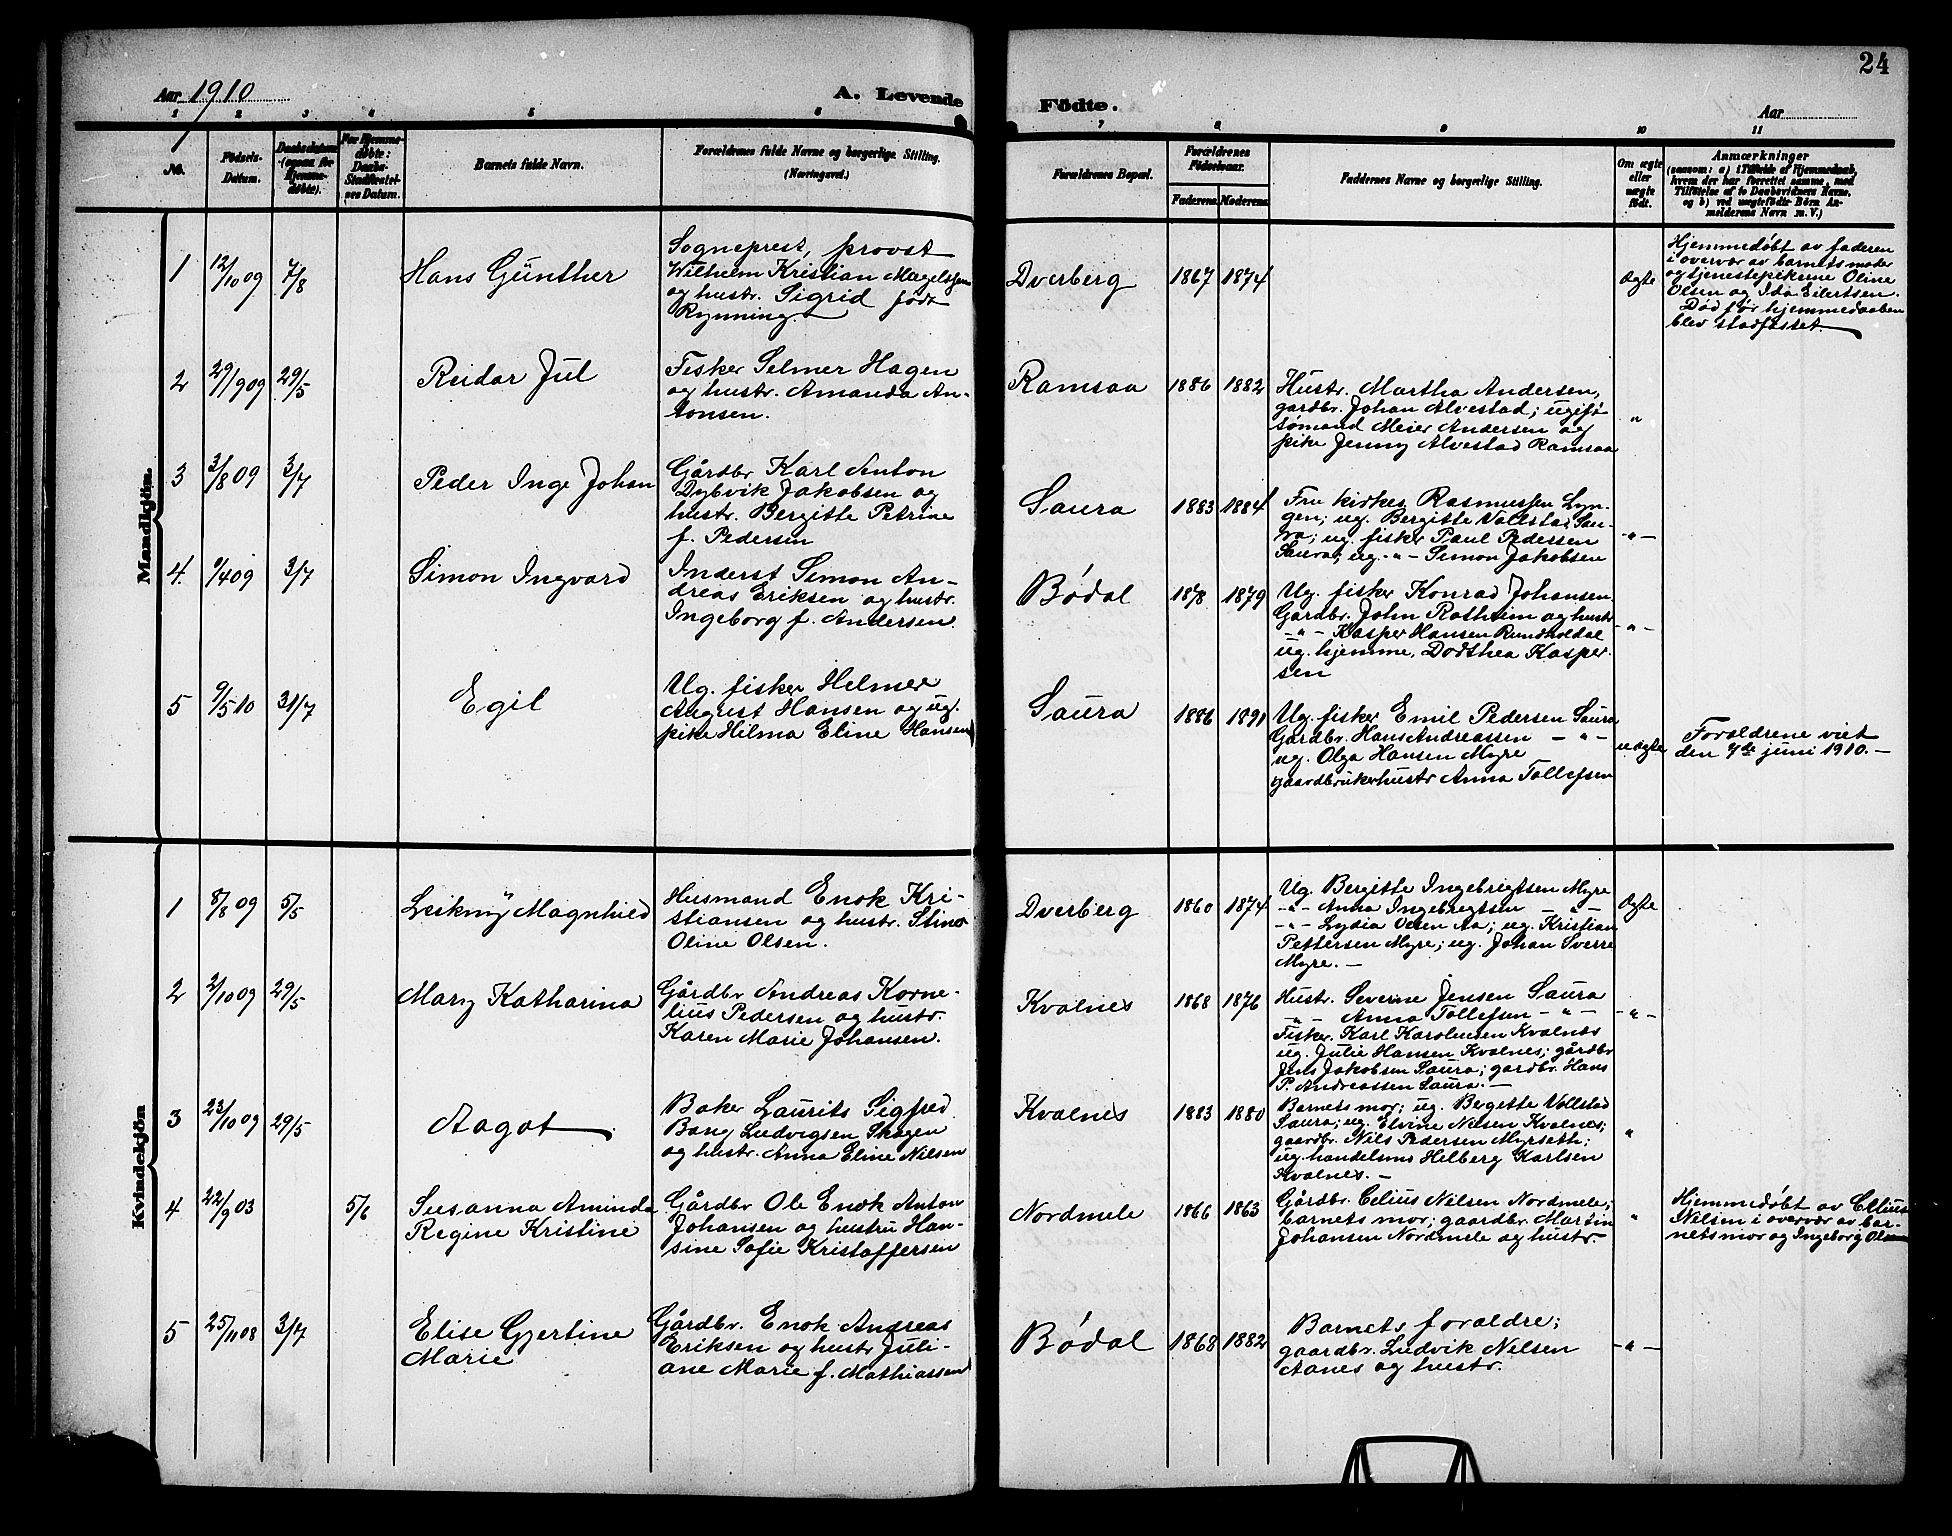 24
Aar 1910
A. Levende Födte.
Aar
1 2 3 4 5 6 7 8 9 10 11
No.
Födsels-
Datum.
Daabsdatum
(ogsaa for
Hjemme-
döbte).
For Hjemme-
döbte:
Daabs-
Stadfæstel-
ses Datum.
Barnets fulde Navn.
Forældrenes fulde Navne og borgerlige Stilling.
(Næringsvei.)
Forældrenes Bopæl.
Forældrenes
Födselsaar.
Faderens Moderens
Faddernes Navne og borgerlige Stilling.
Om ægte
eller
uægte
født.
Anmærkninger
(saasom: a) i Tilfælde af Hjemmedaab,
hvem der har forrettet samme, med
Tilföielse af to Daabsvidners Navne,
og b) ved uægtefödte Börn An-
melderens Navn m. V.)
Mandkjön.
1 12/10 09 7/8 Hans Günther
Sogneprest, provst
Wilhelm Kristian Magelssen
og hustr. Sigrid født
Rynning.
Dverberg 1867 1874
Ægte
Hjemmedøbt av faderen
i overvær av barnets moder
og tjenestepikerne Oline
Olsen og Ida Eilertsen.
Død før hjemmedaaben
blev stadfestet.
2 29/9 09 29/5 Reidar Jul
Fisker Selmer Hagen
og hustr. Amanda An-
tonsen.
Ramsaa 1886 1882
Hustr. Martha Andersen,
gardbr. Johan Alvestad; ugift
sømand Meier Andersen og
pike Jenny Alvestad Ramsaa
"
3 3/8 09 3/7 Peder Inge Johan
Gårdbr Karl Anton
Dybvik Jakobsen og
hustr. Bergitte Petrine
f. Pedersen
Saura 1883 1884
Fru kirkes. Rasmussen Lyn-
gen; ug. Bergitte Vollstad Sau-
ra; ug. fisker Paul Pedersen
Saura; ug. -"- Simon Jakobsen
-"-
4. 9/4 09 3/7 Simon Ingvard
Inderst Simon An-
dreas Eriksen og hustr.
Ingeborg f. Andersen.
Bødal 1878 1879
Ug. fisker Konrad Johansen.
Gårdbr. John Rotheim og hustr
-"- Kasper Hansen Rundholdal
ug. hjemme, Dorthea Kasper-
sen
-"-
5 9/5 10 31/7 Egil
Ug. fisker Helmer
August Hansen og ug.
pike Helma Eline Hansen
Saura 1886 1891
Ug. fisker Emil Pedersen Saura
Gårdbr. Hans Andreassen -"-
ug. Olga Hansen Myre
gaardbrukerhustr Anna Tollefsen
uægte
Forældrene viet
den 7de juni 1910. -
Kvindekjön
1 8/8 09 5/5 Leikny Magnhild
Husmand Enok Kri-
stiansen og hustr. Stina
Oline Olsen.
Dverberg 1860 1874
Ug. Bergitte Ingebrigtsen Myre
-"- Anna Ingebrigtsen -"-
-"- Lydia Olsen Aa; ug. Kristian
Pettersen Myre; ug. Johan Sverre
Myre. -
Ægte
2 2/10 09 29/5 Mary Katharina
Gårdbr Andreas Korne-
lius Pedersen og hustr.
Karen Marie Johansen.
Kvalnes 1868 1876
Hustr. Severine Jensen Saura
-"- Anna Tollefsen -"-
Fisker Karl Karolussen Kvalnes
ug. Julie Hansen Kvalnes; gårdbr
Jens Jakobsen Saura; gardbr. Hans
P. Andreassen Saura. -
-"-
3 23/10 09 29/5 Aagot
Baker Laurits Sigfred
Bang Ludvigsen Skogen
og hustr. Anna Eline Nilsen
Kvalnes 1883 1880
Barnets mor; ug. Bergette Vollstad
Saura; ug. Elvine Nilsen Kvalnes;
gaardbr. Nils Pedersen Myrseth;
ug. handelsms Helberg Karlsen
Kvalnes. -
"
4 22/9 03 5/6 Susanna Aminda
Regine Kristine
Gårdbr Ole Enok Anton
Johansen og hustru Han-
sine Sofie Kristoffersen
Nordmele 1866 1863
Gårdbr. Celius Nilsen Nordmele;
barnets mor; gaardbr. Martin
Johansen Nordmele og hustr.
"
Hjemmedøbt av Celius
Nilsen i overvær av bar-
nets mor og Ingeborg Olsen
5 25/11 08 3/7 Elise Gjertine
Marie
Gårdbr. Enok Andreas
Eriksen og hustr Juli-
ane Marie f. Mathiassen
Bødal 1868 1882
Barnets foraldre;
gaardbr. Ludvik Nilsen
Aanes og hustr.
-"-